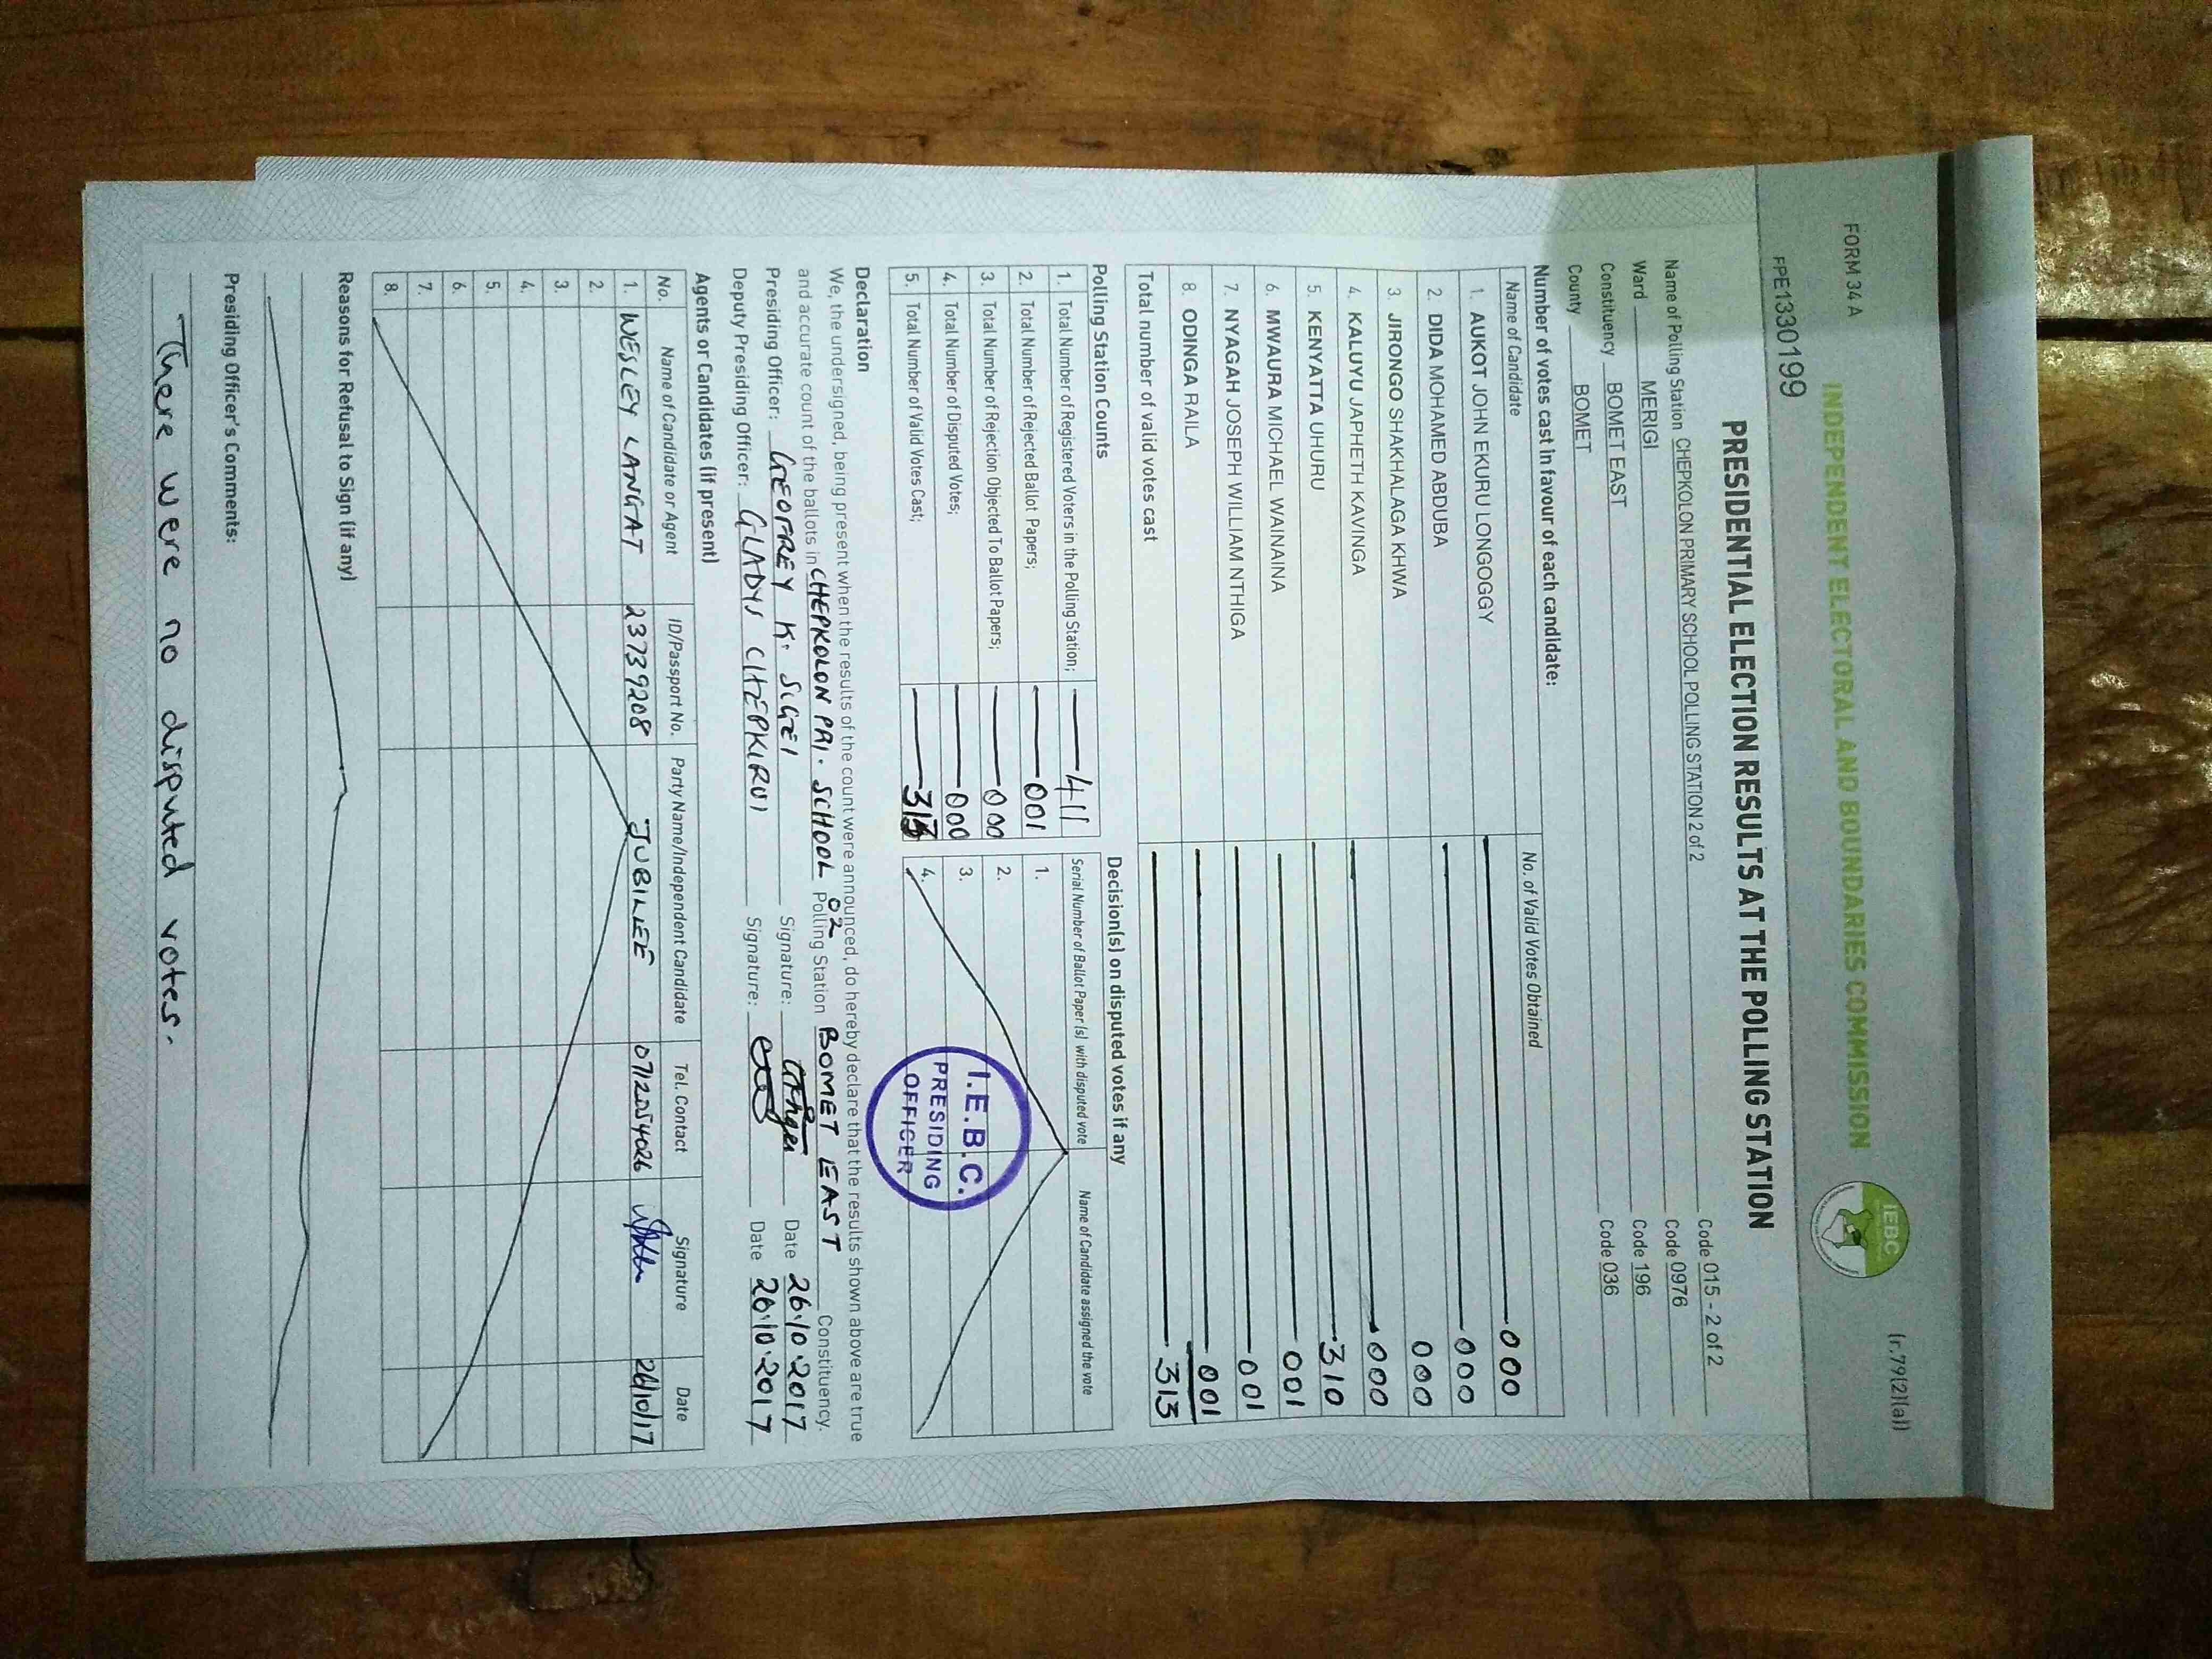 FORM 34 A
(r.79(2)(a))
INDEPENDENT ELECTORAL AND BOUNDARIES COMMISSION
IEBC
FPE1330199
PRESIDENTIAL ELECTION RESULTS AT THE POLLING STATION
Name of Polling Station CHEPKOLON PRIMARY SCHOOL POLLING STATION 2 of 2 Code 015 - 2 of 2
Ward MERIGI Code 0976
Constituency BOMET EAST Code 196
County BOMET Code 036
Number of votes cast in favour of each candidate:
Name of Candidate No. of Valid Votes Obtained
1. AUKOT JOHN EKURU LONGOGGY 000
2. DIDA MOHAMED ABDUBA 000
3. JIRONGO SHAKHALAGA KHWA 000
4. KALUYU JAPHETH KAVINGA 000
5. KENYATTA UHURU 310
6. MWAURA MICHAEL WAINAINA 001
7. NYAGAH JOSEPH WILLIAM NTHIGA 001
8. ODINGA RAILA 001
Total number of valid votes cast 313
Polling Station Counts
1. Total Number of Registered Voters in the Polling Station; 411
2. Total Number of Rejected Ballot Papers; 001
3. Total Number of Rejection Objected To Ballot Papers; 000
4. Total Number of Disputed Votes; 000
5. Total Number of Valid Votes Cast; 313
Decision(s) on disputed votes if any
Serial Number of Ballot Paper (s) with disputed vote Name of Candidate assigned the vote
1.
2.
3.
4.
I.E.B.C.
PRESIDING
OFFICER
Declaration
We, the undersigned, being present when the results of the count were announced, do hereby declare that the results shown above are true
and accurate count of the ballots in CHEPKOLON PRI. SCHOOL 02 Polling Station BOMET EAST Constituency.
Presiding Officer: GEOFREY K. SIGEI Signature: Date 26.10.2017
Deputy Presiding Officer: GLADYS CHEPKIRUI Signature: Date 26.10.2017
Agents or Candidates (if present)
No. Name of Candidate or Agent ID/Passport No. Party Name/Independent Candidate Tel. Contact Signature Date
1. WESLEY LANGAT 23739208 JUBILEE 0712054026 26/10/17
2.
3.
4.
5.
6.
7.
8.
Reasons for Refusal to Sign (if any)
Presiding Officer's Comments:
There were no disputed votes.